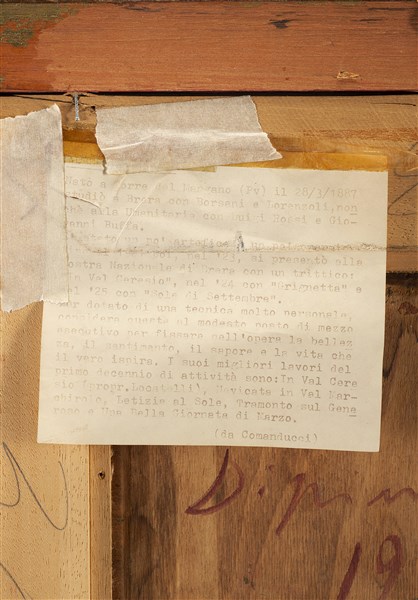 Nato a Torre del Mangano (Pv) il 28/3/1887
studiò a Brera con Borsani e Lorenzoli, non
chè alla Umanitaria con Luigi Rossi e Gio-
vanni Buffa.
un
nel '23, si presentò alla
Mostra Nazionale di Brera con un trittico:
In Val Ceresio", nel '24 con "Brignetta" e
nel '25 con "Sole di Settembre".
Pur dotato di una tecnica molto personale,
considera questa al modesto posto di mezzo
esecutivo per fissare nell'opera la bellez
za, il sentimento, il sapore e la vita che
il vero ispira. I suoi migliori lavori del
primo decennio di attività sono: In Val Cere
sio (propr. Locatelli), Nevicata in Val Mar-
chirolo, Letizia al Sole, Tramonto sul Gene
roso e Una Bella Giornata di Marzo.
(da Comanducci)
Dipin
19